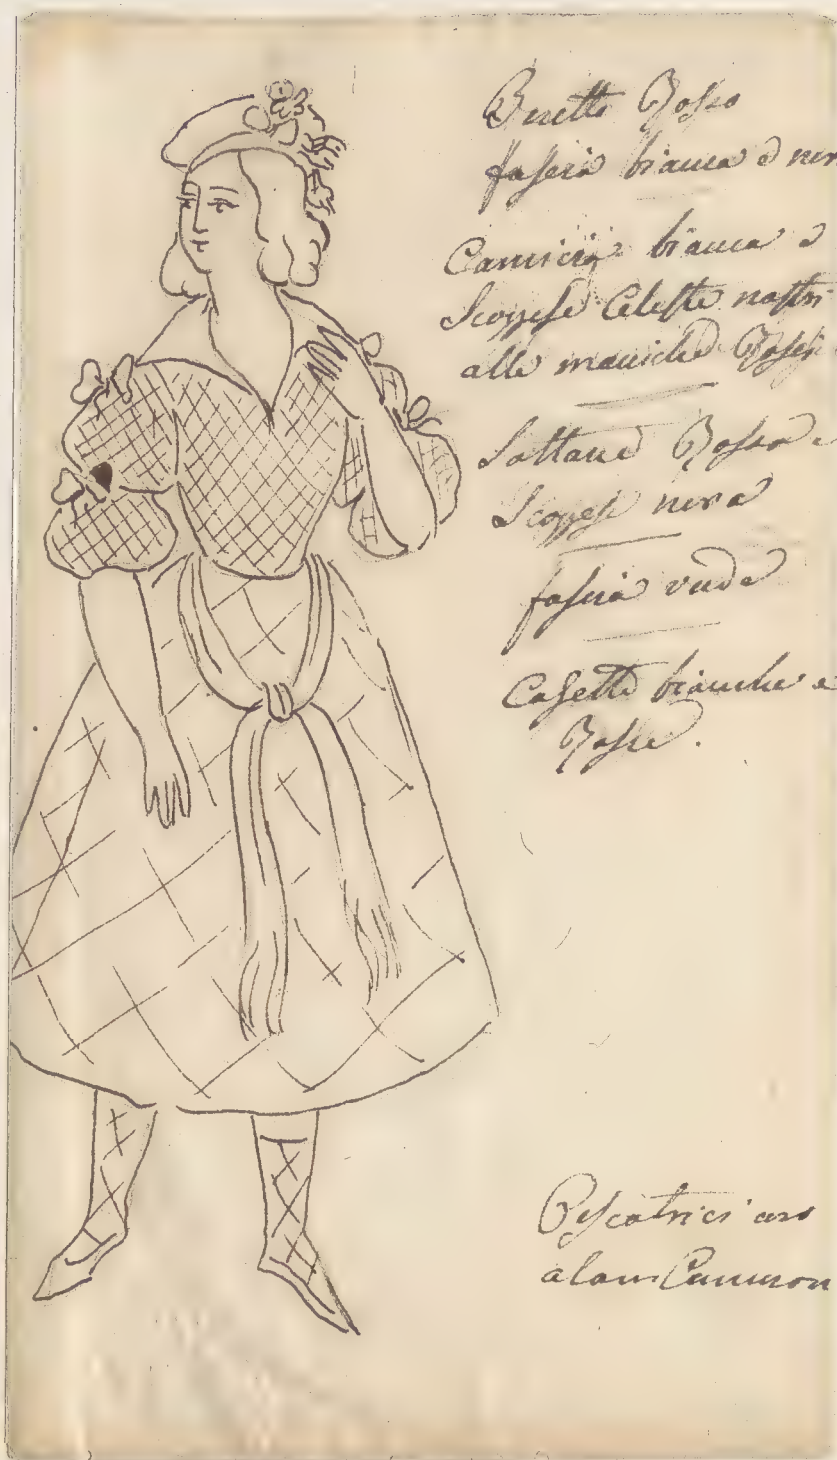 Beretto Rosso
fascia bianca e ner
Camicia bianca e
Scozzese Celeste nastri
alle maniche Rossi
Sottana Rossa e
Scozzese nera
fascia verde
Calsette bianche e
Rosse.
Pescatrici
alan Cameron